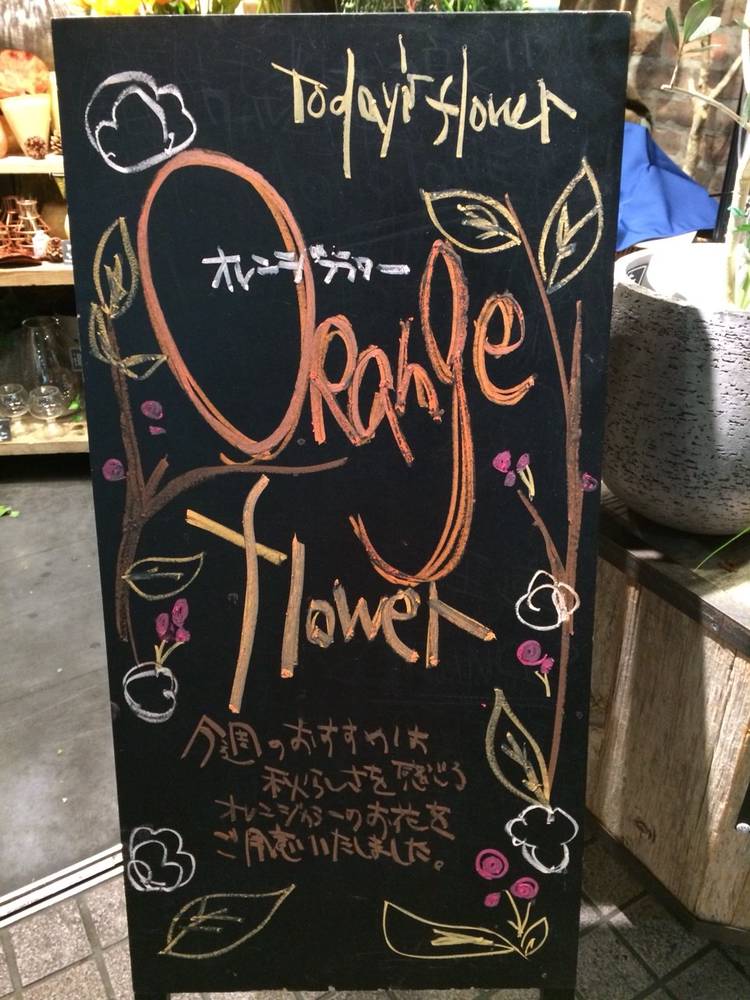 Today's flower
オレンジフラワー
Orange
flower
今週のおすすめは
秋らしさを感じる
オレンジカラーのお花を
ご用意いたしました。